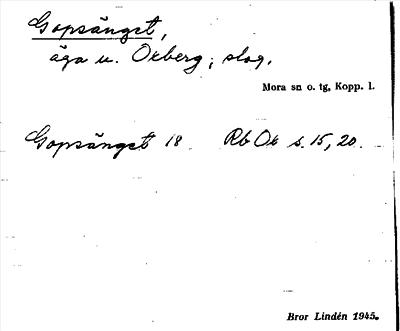 Gopsänget,
äga u. Oxberg; slog.
Mora sn o. tg, Kopp. l.
Gopsänget 18 Rb Ox s. 15, 20.
Bror Lindén 1945.